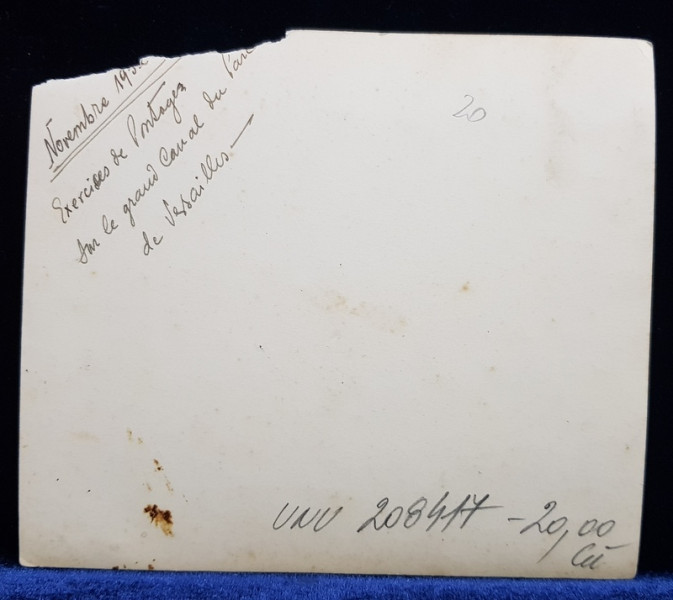 Novembre 193
Exercices de Pontages
sur le grand Canal du Parc
de Versailles —
20
UNV 208417 - 20,00